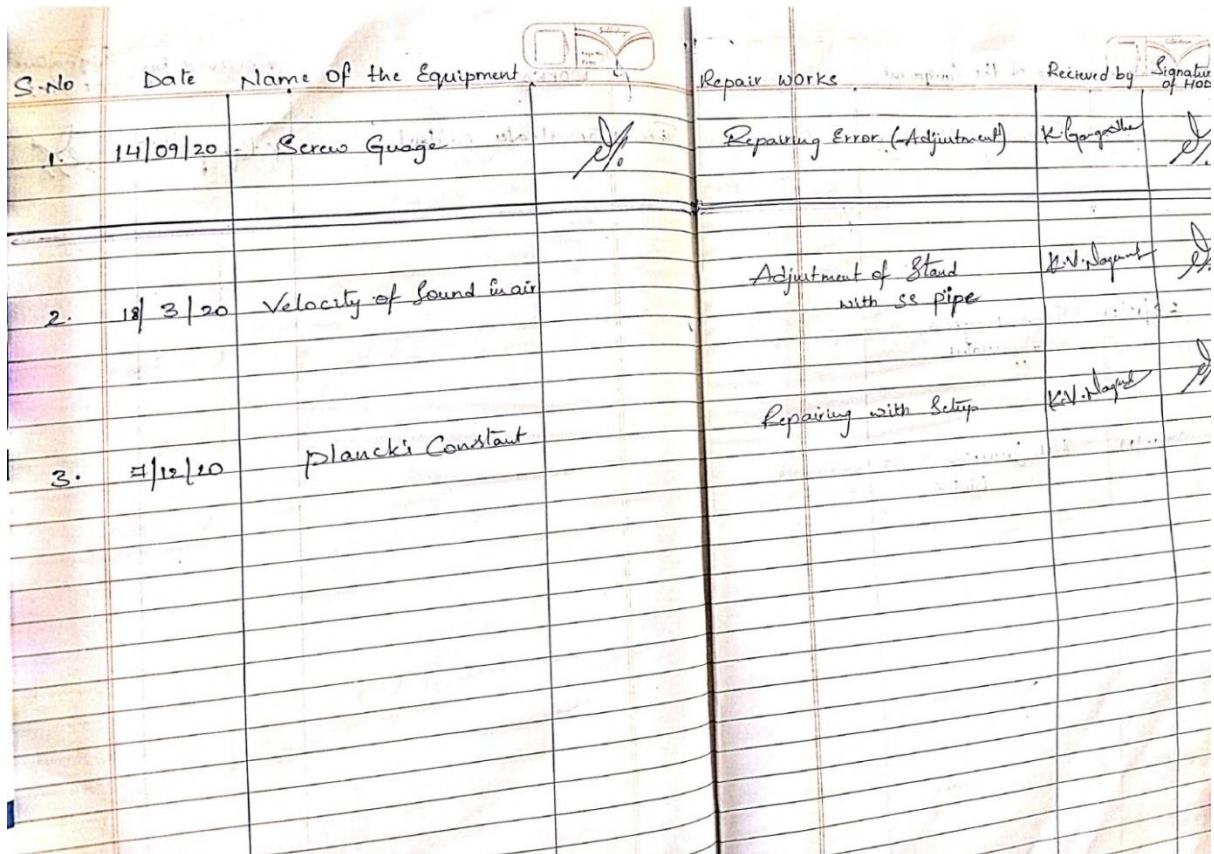 S.No Date Name Of the Equipment Repair works Recieved by Signature of HOD
1. 14/09/20 - Screw Guage Repairing Error (-Adjustment) K.
2. 18/3/20 Velocity of Sound in air Adjustment of Stand with ss pipe K.V.
3. 7/12/20 Planck's Constant Repairing with Setup K.V.